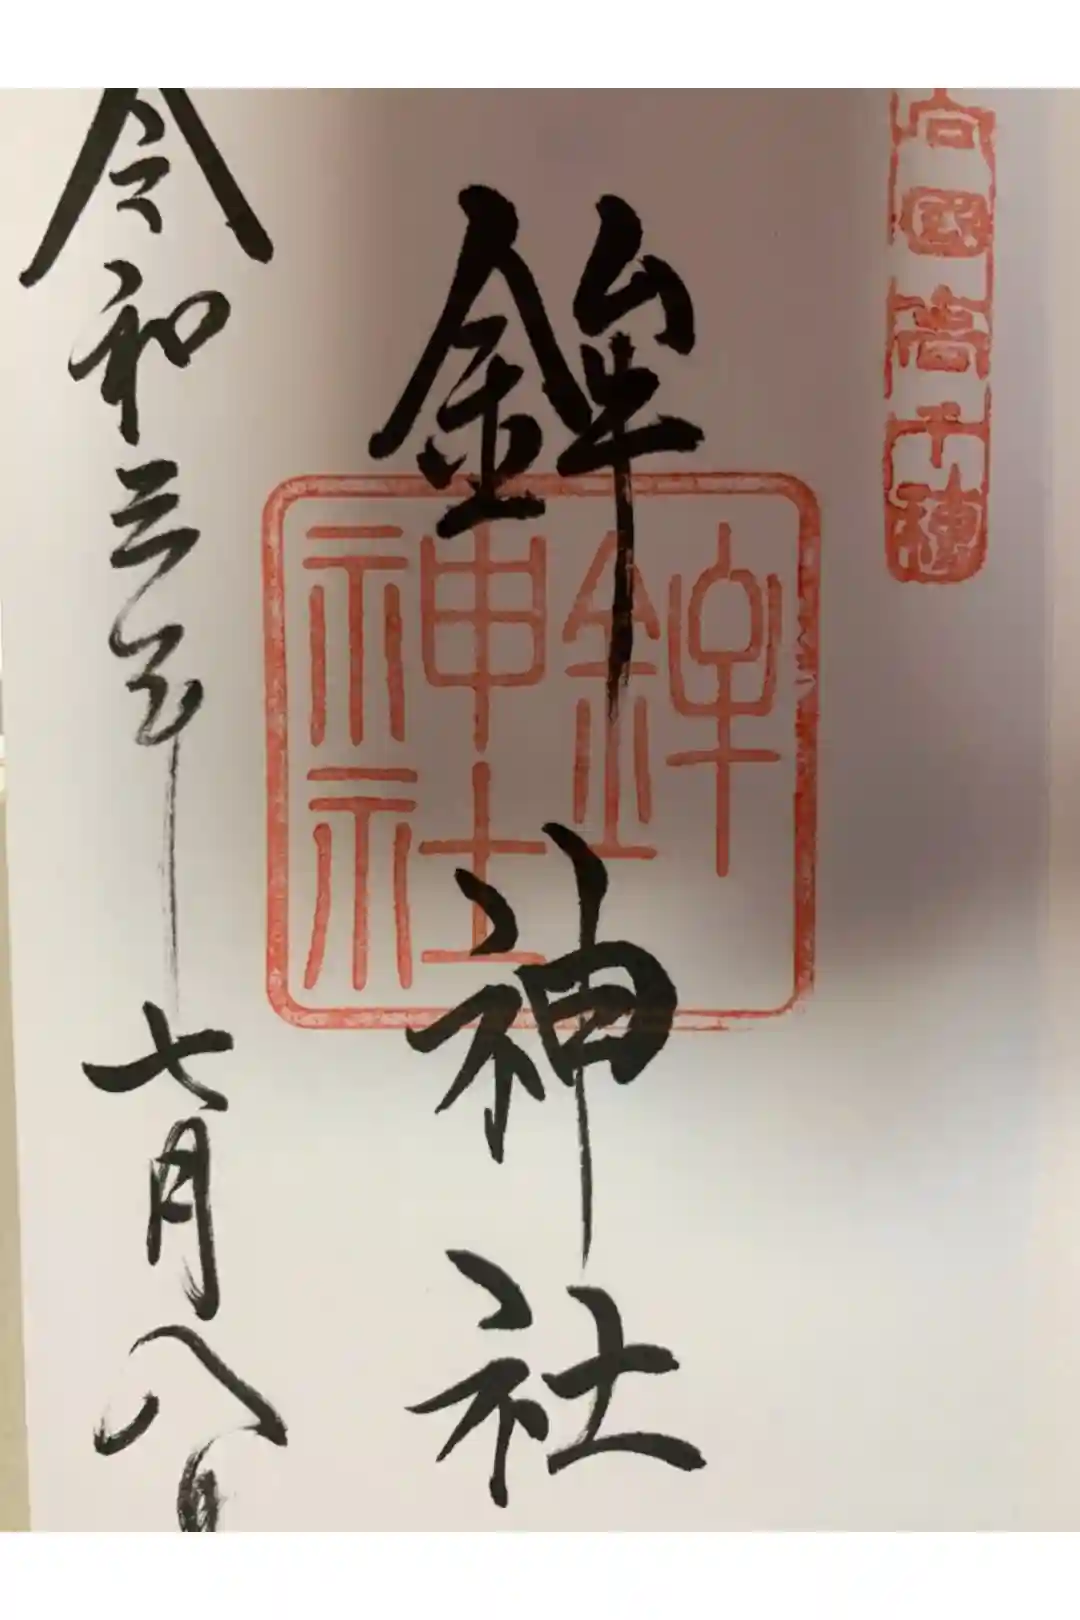 向國高千穂
鉾神社
鉾神社
令和三年七月八日